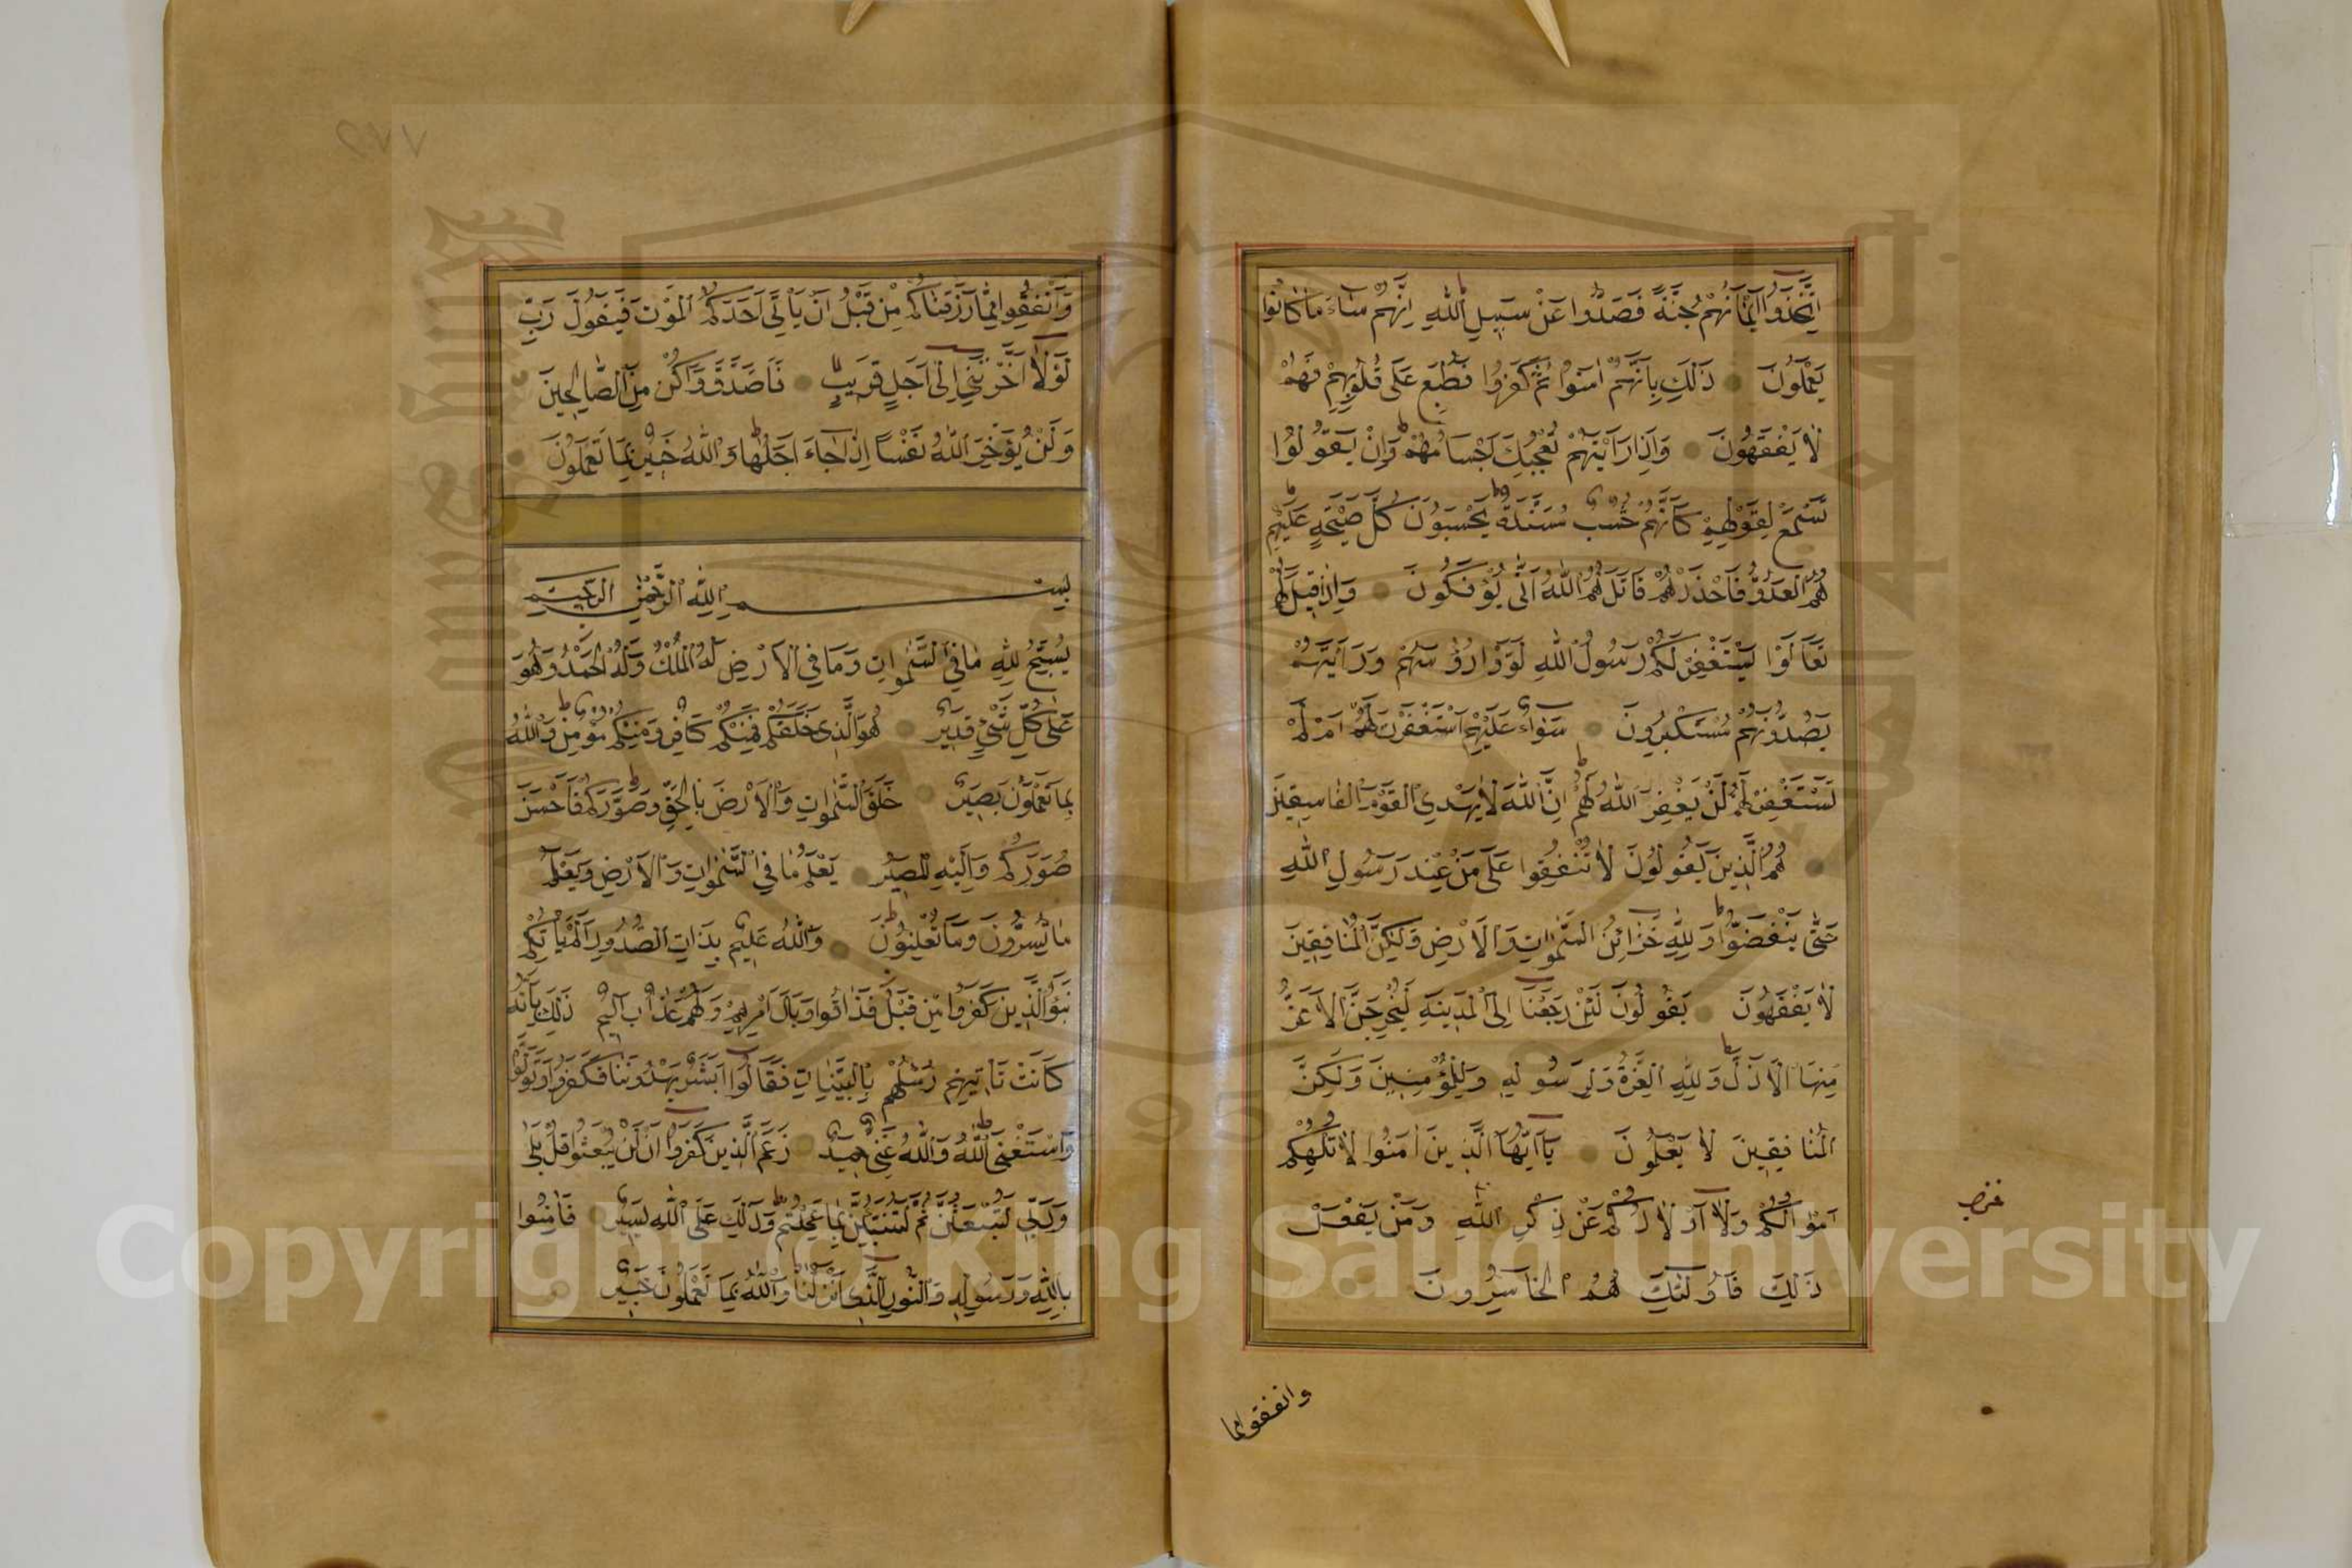 اِتَّخَذُوا اَيْمَانَهُمْ جُنَّةً فَصَدُّوا عَنْ سَبِيلِ اللّٰهِ اِنَّهُمْ سَاءَ مَا كَانُوا
يَعْمَلُونَ ذٰلِكَ بِاَنَّهُمْ اٰمَنُوا ثُمَّ كَفَرُوا فَطُبِعَ عَلٰى قُلُوبِهِمْ فَهُمْ
لَا يَفْقَهُونَ وَاِذَا رَاَيْتَهُمْ تُعْجِبُكَ اَجْسَامُهُمْ وَاِنْ يَقُولُوا
تَسْمَعْ لِقَوْلِهِمْ كَاَنَّهُمْ خُشُبٌ مُسَنَّدَةٌ يَحْسَبُونَ كُلَّ صَيْحَةٍ عَلَيْهِمْ
هُمُ الْعَدُوُّ فَاحْذَرْهُمْ قَاتَلَهُمُ اللّٰهُ اَنّٰى يُؤْفَكُونَ وَاِذَا قِيلَ لَهُمْ
تَعَالَوْا يَسْتَغْفِرْ لَكُمْ رَسُولُ اللّٰهِ لَوَّوْا رُؤُسَهُمْ وَرَاَيْتَهُمْ
يَصُدُّونَ وَهُمْ مُسْتَكْبِرُونَ سَوَاءٌ عَلَيْهِمْ اَسْتَغْفَرْتَ لَهُمْ اَمْ لَمْ
تَسْتَغْفِرْ لَهُمْ لَنْ يَغْفِرَ اللّٰهُ لَهُمْ اِنَّ اللّٰهَ لَا يَهْدِي الْقَوْمَ الْفَاسِقِينَ
هُمُ الَّذِينَ يَقُولُونَ لَا تُنْفِقُوا عَلٰى مَنْ عِنْدَ رَسُولِ اللّٰهِ
حَتّٰى يَنْفَضُّوا وَلِلّٰهِ خَزَائِنُ السَّمٰوَاتِ وَالْاَرْضِ وَلٰكِنَّ الْمُنَافِقِينَ
لَا يَفْقَهُونَ يَقُولُونَ لَئِنْ رَجَعْنَا اِلَى الْمَدِينَةِ لَيُخْرِجَنَّ الْاَعَزُّ
مِنْهَا الْاَذَلَّ وَلِلّٰهِ الْعِزَّةُ وَلِرَسُولِهِ وَلِلْمُؤْمِنِينَ وَلٰكِنَّ
الْمُنَافِقِينَ لَا يَعْلَمُونَ يَا اَيُّهَا الَّذِينَ اٰمَنُوا لَا تُلْهِكُمْ
اَمْوَالُكُمْ وَلَا اَوْلَادُكُمْ عَنْ ذِكْرِ اللّٰهِ وَمَنْ يَفْعَلْ
ذٰلِكَ فَاُولٰئِكَ هُمُ الْخَاسِرُونَ
وانفقوا مما
وَاَنْفِقُوا مِمَّا رَزَقْنَاكُمْ مِنْ قَبْلِ اَنْ يَاْتِيَ اَحَدَكُمُ الْمَوْتُ فَيَقُولَ رَبِّ
لَوْلَا اَخَّرْتَنِي اِلٰى اَجَلٍ قَرِيبٍ فَاَصَّدَّقَ وَاَكُنْ مِنَ الصَّالِحِينَ
وَلَنْ يُؤَخِّرَ اللّٰهُ نَفْسًا اِذَا جَاءَ اَجَلُهَا وَاللّٰهُ خَبِيرٌ بِمَا تَعْمَلُونَ
بِسْمِ اللّٰهِ الرَّحْمٰنِ الرَّحِيمِ
يُسَبِّحُ لِلّٰهِ مَا فِي السَّمٰوَاتِ وَمَا فِي الْاَرْضِ لَهُ الْمُلْكُ وَلَهُ الْحَمْدُ وَهُوَ
عَلٰى كُلِّ شَيْءٍ قَدِيرٌ هُوَ الَّذِي خَلَقَكُمْ فَمِنْكُمْ كَافِرٌ وَمِنْكُمْ مُؤْمِنٌ وَاللّٰهُ
بِمَا تَعْمَلُونَ بَصِيرٌ خَلَقَ السَّمٰوَاتِ وَالْاَرْضَ بِالْحَقِّ وَصَوَّرَكُمْ فَاَحْسَنَ
صُوَرَكُمْ وَاِلَيْهِ الْمَصِيرُ يَعْلَمُ مَا فِي السَّمٰوَاتِ وَالْاَرْضِ وَيَعْلَمُ
مَا تُسِرُّونَ وَمَا تُعْلِنُونَ وَاللّٰهُ عَلِيمٌ بِذَاتِ الصُّدُورِ اَلَمْ يَاْتِكُمْ
نَبَؤُ الَّذِينَ كَفَرُوا مِنْ قَبْلُ فَذَاقُوا وَبَالَ اَمْرِهِمْ وَلَهُمْ عَذَابٌ اَلِيمٌ ذٰلِكَ بِاَنَّهُ
كَانَتْ تَاْتِيهِمْ رُسُلُهُمْ بِالْبَيِّنَاتِ فَقَالُوا اَبَشَرٌ يَهْدُونَنَا فَكَفَرُوا وَتَوَلَّوْا
وَاسْتَغْنَى اللّٰهُ وَاللّٰهُ غَنِيٌّ حَمِيدٌ زَعَمَ الَّذِينَ كَفَرُوا اَنْ لَنْ يُبْعَثُوا قُلْ بَلٰى
وَرَبِّي لَتُبْعَثُنَّ ثُمَّ لَتُنَبَّؤُنَّ بِمَا عَمِلْتُمْ وَذٰلِكَ عَلَى اللّٰهِ يَسِيرٌ فَاٰمِنُوا
بِاللّٰهِ وَرَسُولِهِ وَالنُّورِ الَّذِي اَنْزَلْنَا وَاللّٰهُ بِمَا تَعْمَلُونَ خَبِيرٌ
Copyright © King Saud University